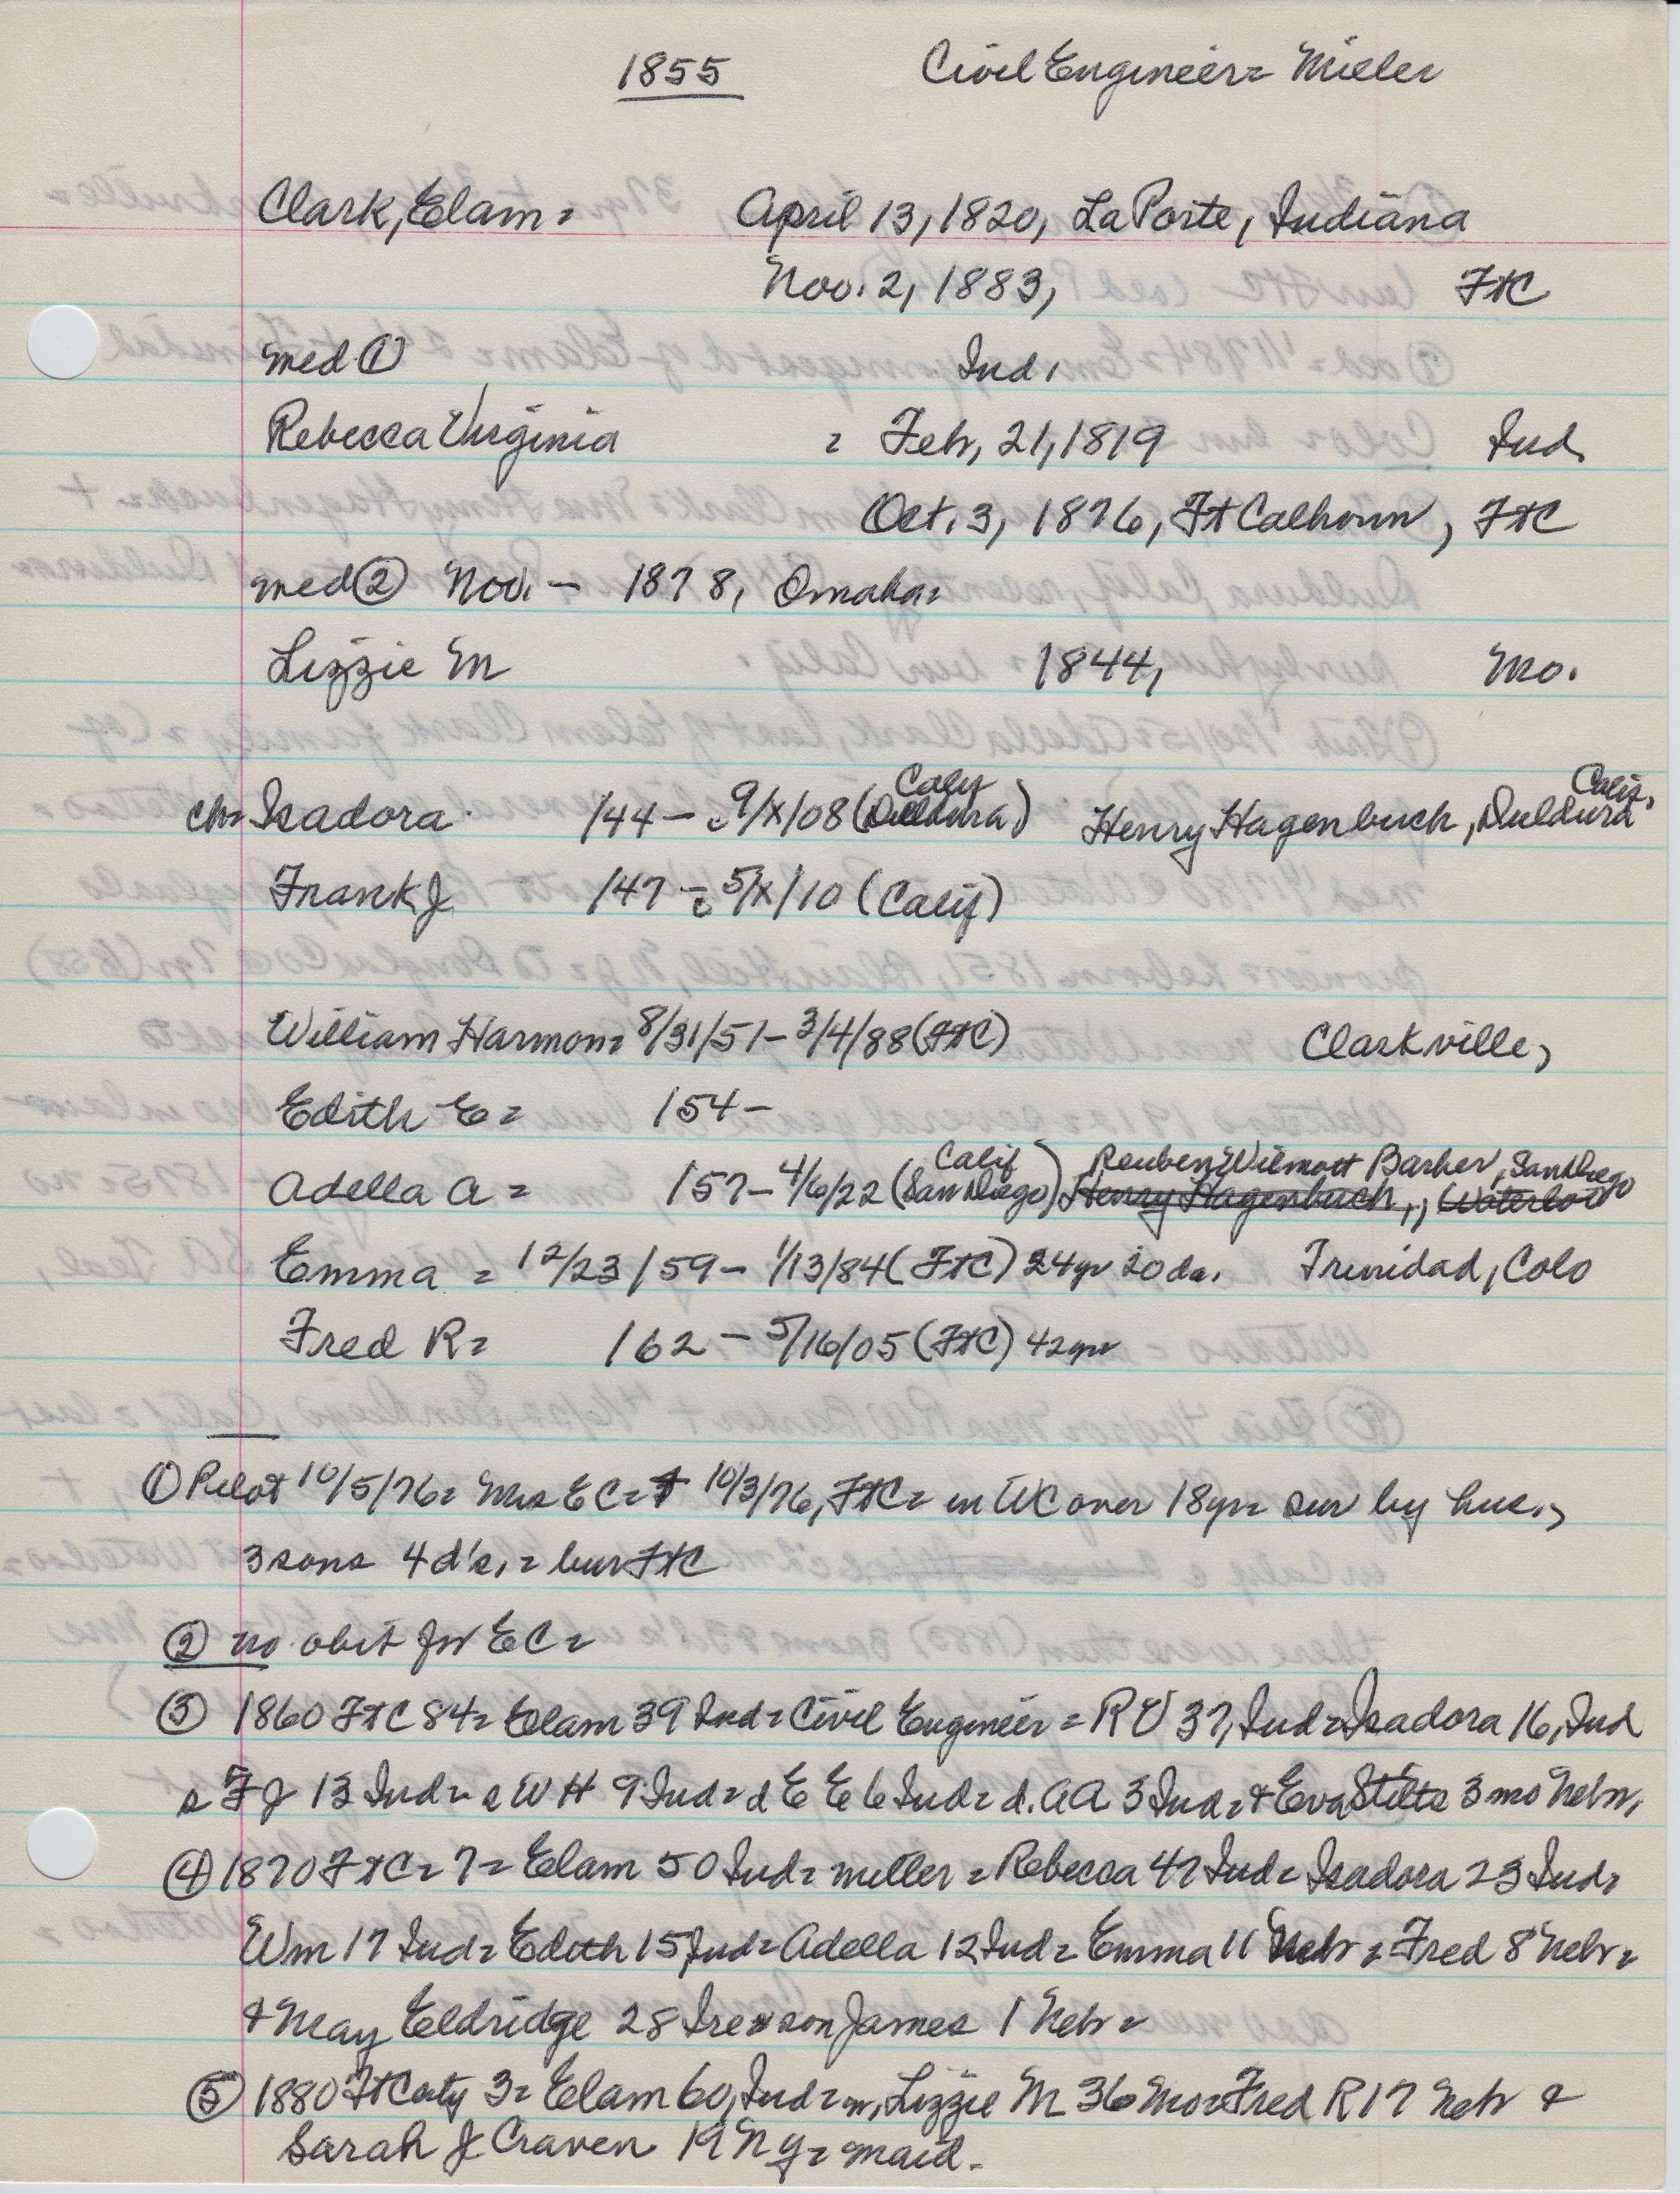 1855 Civil Engineer= Miller
Clark, Elam= April 13, 1820, LaPorte, Indiana
Nov. 2, 1883, FtC
med ① Ind.
Rebecca Virginia = Feb, 21, 1819 Ind.
Oct. 3, 1876, Ft Calhoun, FtC
med ② Nov. – 1878, Omaha=
Lizzie M 1844, Mo.
ch= Isadora /44 – c 9/x/08 (Calif Duldura) Henry Hagenbuch, Duldura Calif.
Frank J /47 – c 5/x/10 (Calif)
William Harmon= 8/31/51 – 3/4/88 (FtC) Clarkville,
Edith E= /54 –
Adella A= /57 – 4/6/22 (Calif San Diego) Reuben Wilmott Barber, San Diego
Henry Hagenbuch,, (Waterloo
Emma = 12/23/59 – 1/13/84 (FtC) 24yr 20da. Trinidad, Colo
Fred R= /62 – 5/16/05 (FtC) 42yr
① Pilot 10/5/76= Mrs EC= † 10/3/76, FtC= in WC over 18yr= sur by hus.,
3 sons 4 d's.= bur FtC
② no obit for EC=
③ 1860 FtC 84= Elam 39 Ind= Civil Engineer = RV 37, Ind= Isadora 16, Ind
s FJ 13 Ind= s WH 9 Ind= d EE 6 Ind= d. AA 3 Ind= & Eva Stilts 3 mo Nebr,
④ 1870 FtC= 7= Elam 50 Ind= miller = Rebecca 47 Ind= Isadora 23 Ind=
Wm 17 Ind= Edith 15 Ind= Adella 12 Ind= Emma 11 Nebr = Fred 8 Nebr=
& May Eldridge 28 Ire= son James 1 Nebr=
⑤ 1880 FtC city 3= Elam 60, Ind= m, Lizzie M 36 Mo= Fred R 17 Nebr &
Sarah J Craven 19 NY= maid.